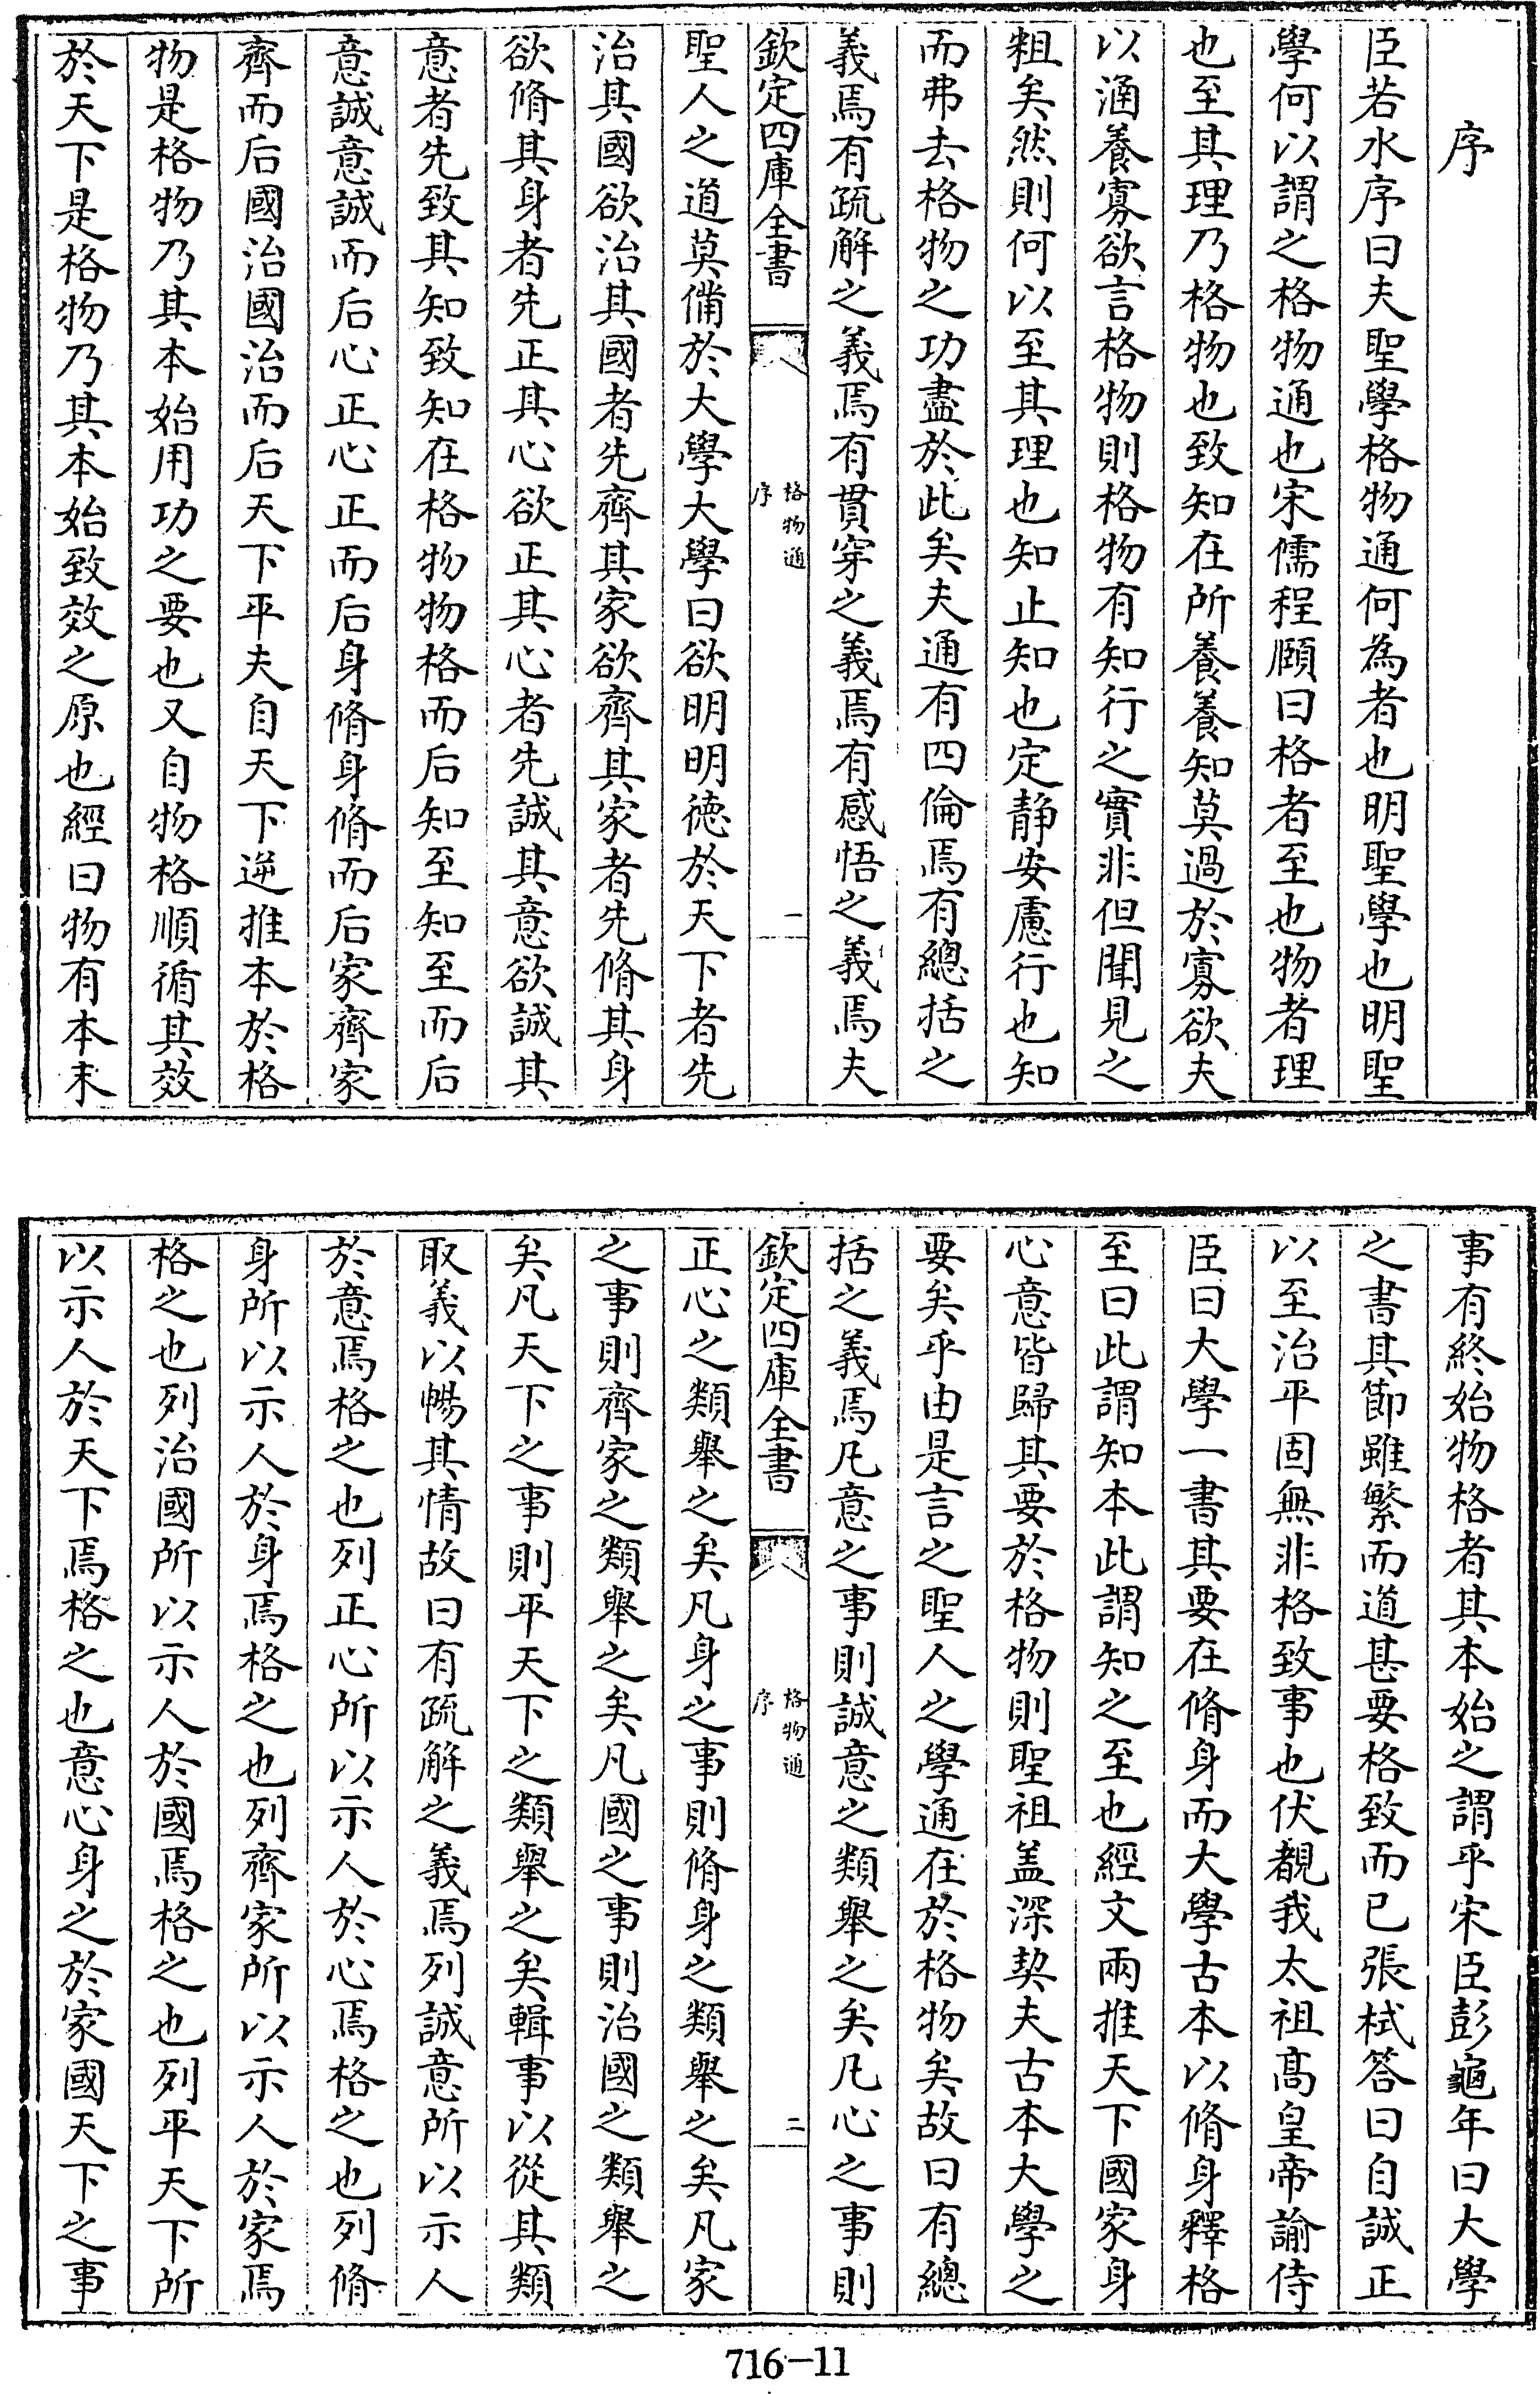 序
臣若水序曰夫聖學格物通何為者也明聖學也明聖
學何以謂之格物通也宋儒程頤曰格者至也物者理
也至其理乃格物也致知在所養養知莫過於寡欲夫
以涵養寡欲言格物則格物有知行之實非但聞見之
粗矣然則何以至其理也知止知也定静安慮行也知
而弗去格物之功盡於此矣夫通有四倫焉有總括之
義焉有疏解之義焉有貫穿之義焉有感悟之義焉夫
欽定四庫全書
格物通
序
一
聖人之道莫備於大學大學曰欲明明徳於天下者先
治其國欲治其國者先齊其家欲齊其家者先脩其身
欲脩其身者先正其心欲正其心者先誠其意欲誠其
意者先致其知致知在格物物格而后知至知至而后
意誠意誠而后心正心正而后身脩身脩而后家齊家
齊而后國治國治而后天下平夫自天下逆推本於格
物是格物乃其本始用功之要也又自物格順循其效
於天下是格物乃其本始致效之原也經曰物有本末
事有終始物格者其本始之謂乎宋臣彭龜年曰大學
之書其節雖繁而道甚要格致而已張栻答曰自誠正
以至治平固無非格致事也伏覩我太祖髙皇帝諭侍
臣曰大學一書其要在脩身而大學古本以脩身釋格
至曰此謂知本此謂知之至也經文兩推天下國家身
心意皆歸其要於格物則聖祖盖深契夫古本大學之
要矣乎由是言之聖人之學通在於格物矣故曰有總
括之義焉凡意之事則誠意之類舉之矣凡心之事則
欽定四庫全書
格物通
序
二
正心之類舉之矣凡身之事則脩身之類舉之矣凡家
之事則齊家之類舉之矣凡國之事則治國之類舉之
矣凡天下之事則平天下之類舉之矣輯事以從其類
取義以暢其情故曰有疏解之義焉列誠意所以示人
於意焉格之也列正心所以示人於心焉格之也列脩
身所以示人於身焉格之也列齊家所以示人於家焉
格之也列治國所以示人於國焉格之也列平天下所
以示人於天下焉格之也意心身之於家國天下之事
716-11